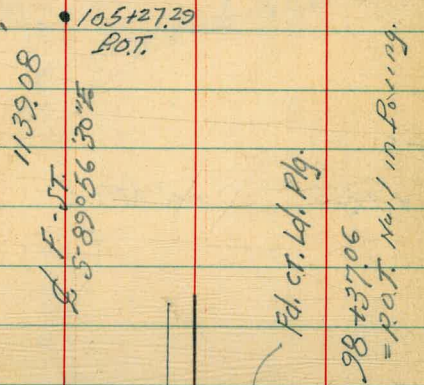 105+27.29
P.O.T.
1139.08
℄ F-ST.
S-89°56'30"E
Fd. CT. Ld. Plg.
98+37.06
=P.O.T. Nail in Paving.